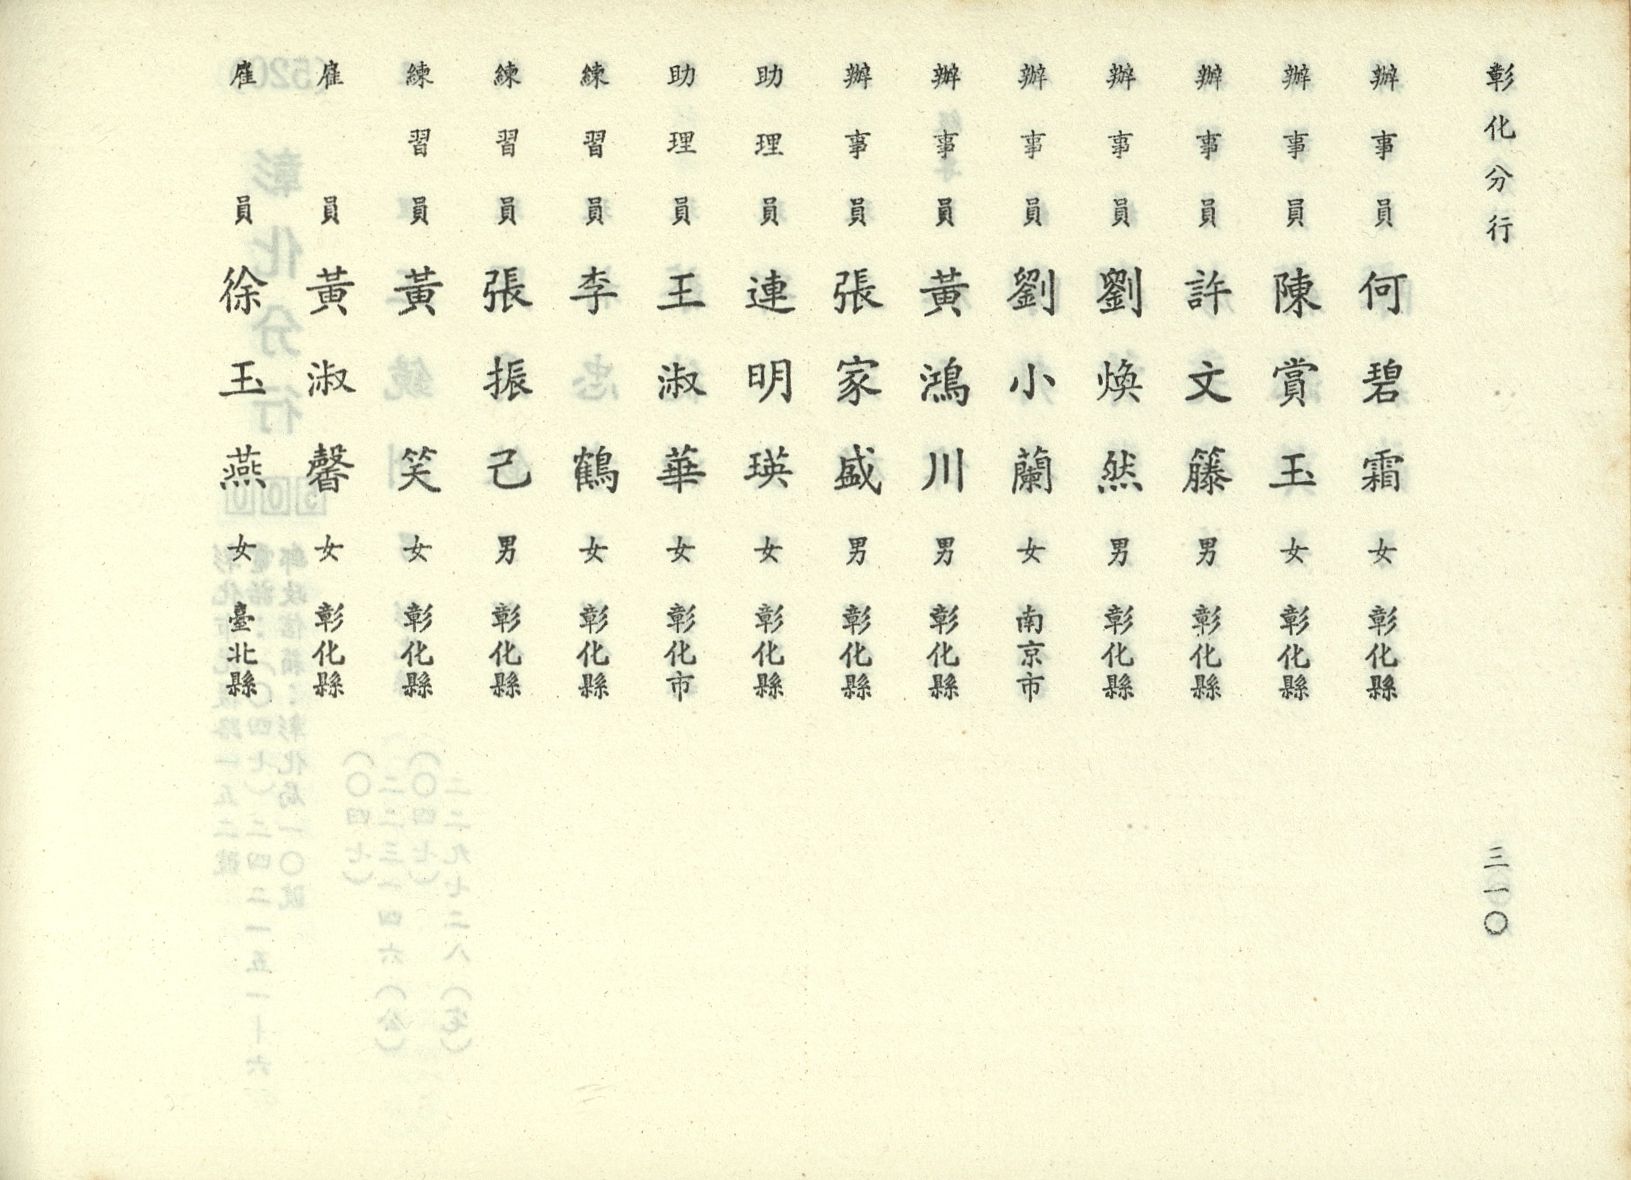 彰化分行
辦事員 何碧霜 女 彰化縣
辦事員 陳賞玉 女 彰化縣
辦事員 許文籐 男 彰化縣
辦事員 劉煥然 男 彰化縣
辦事員 劉小蘭 女 南京市
辦事員 黃鴻川 男 彰化縣
辦事員 張家盛 男 彰化縣
助理員 連明瑛 女 彰化縣
助理員 王淑華 女 彰化市
練習員 李鶴 女 彰化縣
練習員 張振己 男 彰化縣
練習員 黃笑 女 彰化縣
雇員 黃淑馨 女 彰化縣
雇員 徐玉燕 女 臺北縣
三一〇